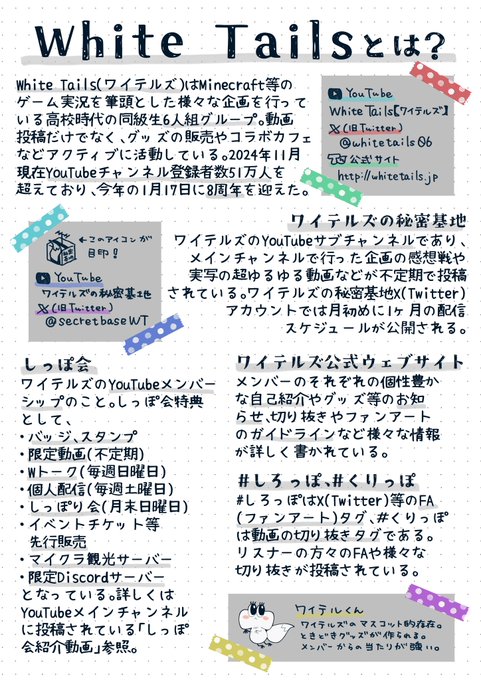 White Tailsとは?
White Tails(ワイテルズ)はMinecraft等の
ゲーム実況を筆頭とした様々な企画を行って
いる高校時代の同級生6人組グループ。動画
投稿だけでなく、グッズの販売やコラボカフェ
などアクティブに活動している。2024年11月
現在YouTubeチャンネル登録者数51万人を
超えており、今年の1月17日に8周年を迎えた。
YouTube
White Tails【ワイテルズ】
X(旧Twitter)
@whitetails06
公式サイト
http://whitetails.jp
ワイテルズの秘密基地
ワイテルズのYouTubeサブチャンネルであり、
メインチャンネルで行った企画の感想戦や
実写の超ゆるゆる動画などが不定期で投稿
されている。ワイテルズの秘密基地X(Twitter)
アカウントでは月初めに1ヶ月の配信
スケジュールが公開される。
←このアイコンが
目印!
YouTube
ワイテルズの秘密基地
X(旧Twitter)
@secretbaseWT
しっぽ会
ワイテルズのYouTubeメンバー
シップのこと。しっぽ会特典
として、
・バッジ、スタンプ
・限定動画(不定期)
・Wトーク(毎週日曜日)
・個人配信(毎週土曜日)
・しっぽり会(月末日曜日)
・イベントチケット等
先行販売
・マイクラ観光サーバー
・限定Discordサーバー
となっている。詳しくは
YouTubeメインチャンネル
に投稿されている「しっぽ
会紹介動画」参照。
ワイテルズ公式ウェブサイト
メンバーのそれぞれの個性豊か
な自己紹介やグッズ等のお知
らせ、切り抜きやファンアート
のガイドラインなど様々な情報
が詳しく書かれている。
#しろっぽ、#くりっぽ
#しろっぽはX(Twitter)等のFA
(ファンアート)タグ、#くりっぽ
は動画の切り抜きタグである。
リスナーの方々のFAや様々な
切り抜きが投稿されている。
ワイテルくん
ワイテルズのマスコット的存在。
ときどきグッズが作られる。
メンバーからの当たりが強い。